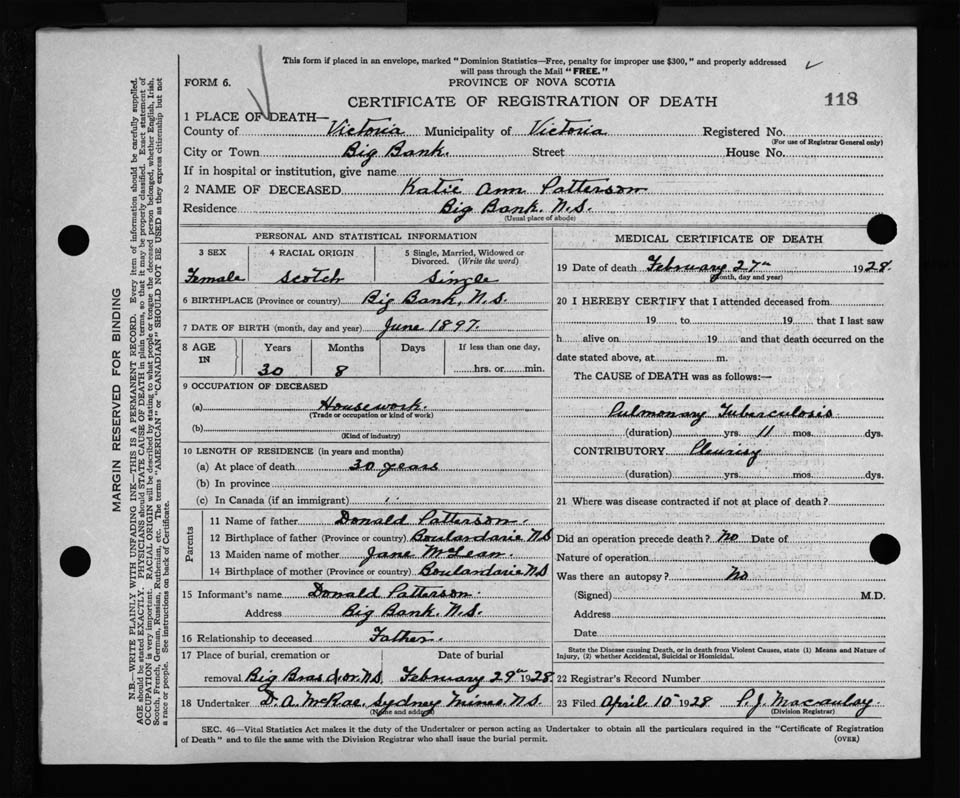 This form if placed in an envelope, marked "Dominion Statistics—Free, penalty for improper use $300," and properly addressed
will pass through the Mail "FREE."
FORM 6.
PROVINCE OF NOVA SCOTIA
CERTIFICATE OF REGISTRATION OF DEATH
118
1 PLACE OF DEATH—
County of Victoria Municipality of Victoria Registered No.
(For use of Registrar General only)
City or Town Big Bank. Street House No.
If in hospital or institution, give name
2 NAME OF DECEASED Katie Ann Patterson
Residence Big Bank. N.S.
(Usual place of abode)
PERSONAL AND STATISTICAL INFORMATION
3 SEX 4 RACIAL ORIGIN 5 Single, Married, Widowed or
Divorced. (Write the word)
Female Scotch Single
6 BIRTHPLACE (Province or country) Big Bank, N.S.
7 DATE OF BIRTH (month, day and year) June 1897.
8 AGE IN Years Months Days If less than one day,
30 8 hrs. or min.
9 OCCUPATION OF DECEASED
(a) Housework.
(Trade or occupation or kind of work)
(b)
(Kind of industry)
10 LENGTH OF RESIDENCE (in years and months)
(a) At place of death 30 years
(b) In province
(c) In Canada (if an immigrant)
Parents
11 Name of father Donald Patterson.
12 Birthplace of father (Province or country) Boulardarie N.S
13 Maiden name of mother Jane McLean.
14 Birthplace of mother (Province or country) Boulardarie N.S
15 Informant's name Donald Patterson.
Address Big Bank. N.S.
16 Relationship to deceased Father.
17 Place of burial, cremation or Date of burial
removal Big Bras d'or. N.S. February 29th 1928.
18 Undertaker D. A. McRae, Sydney Mines N.S.
(Name and address)
MEDICAL CERTIFICATE OF DEATH
19 Date of death February 27th 1928.
(Month, day and year)
20 I HEREBY CERTIFY that I attended deceased from
19 to 19 that I last saw
h alive on 19 and that death occurred on the
date stated above, at m.
The CAUSE of DEATH was as follows:—
Pulmonary Tuberculosis
(duration) yrs. 11 mos. dys.
CONTRIBUTORY Pleurisy
(duration) yrs. mos. dys.
21 Where was disease contracted if not at place of death?
Did an operation precede death? No Date of
Nature of operation
Was there an autopsy? No
(Signed) M.D.
Address
Date
State the Disease causing Death, or in death from Violent Causes, state (1) Means and Nature of
Injury, (2) whether Accidental, Suicidal or Homicidal.
22 Registrar's Record Number
23 Filed April 10th 1928 P. J. Macaulay
(Division Registrar)
SEC. 46—Vital Statistics Act makes it the duty of the Undertaker or person acting as Undertaker to obtain all the particulars required in the "Certificate of Registration
of Death" and to file the same with the Division Registrar who shall issue the burial permit. (OVER)
MARGIN RESERVED FOR BINDING
N.B.—WRITE PLAINLY WITH UNFADING INK—THIS IS A PERMANENT RECORD. Every item of information should be carefully supplied.
AGE should be stated EXACTLY. PHYSICIANS should STATE CAUSE OF DEATH in plain terms, so that it may be properly classified. Exact statement of
OCCUPATION is very important. RACIAL ORIGIN will be described by stating to what people or tongue the deceased person belonged, whether English, Irish,
Scotch, French, German, Russian, Ruthenian, etc. The terms "AMERICAN" or "CANADIAN" SHOULD NOT BE USED as they express citizenship but not
a race or people. See instructions on back of Certificate.